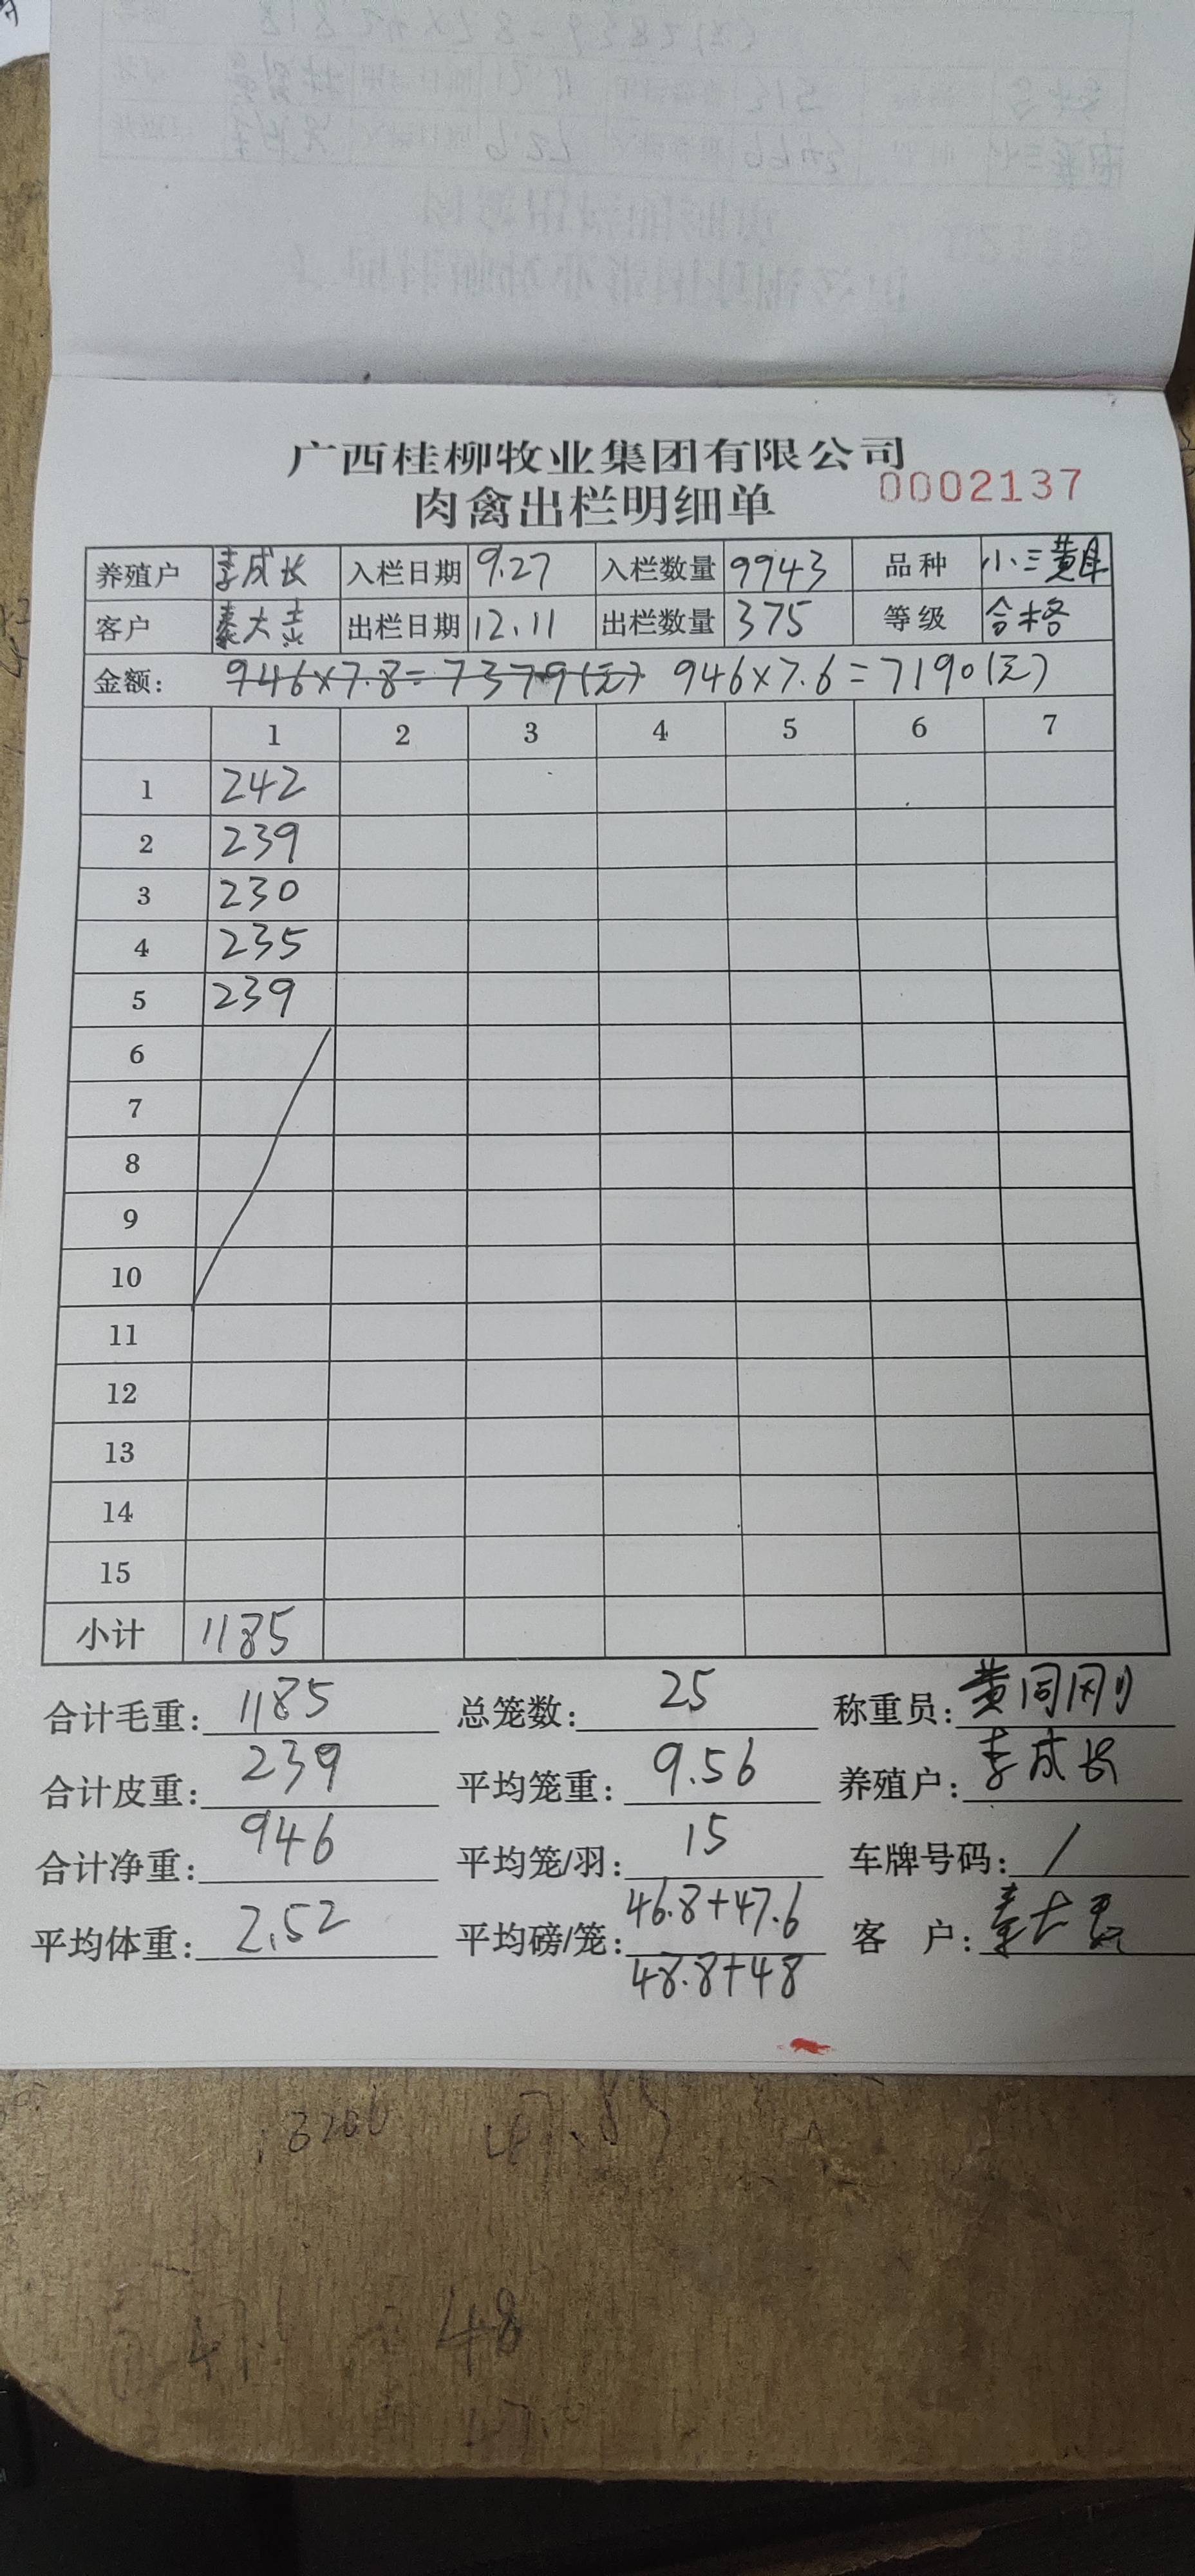 广西桂柳牧业集团有限公司
肉禽出栏明细单 0002137
养殖户 李成长 入栏日期 9.27 入栏数量 9943 品种 小三黄
客户 秦大 出栏日期 12.11 出栏数量 375 等级 合格
金额: 946×7.8=7379(元) 946×7.6=7190(元)
1 2 3 4 5 6 7
1 242
2 239
3 230
4 235
5 239
6
7
8
9
10
11
12
13
14
15
小计 1185
合计毛重: 1185 总笼数: 25 称重员: 黄同刚
合计皮重: 239 平均笼重: 9.56 养殖户: 李成长
合计净重: 946 平均笼/羽: 15 车牌号码: /
平均体重: 2.52 平均磅/笼: 46.8+47.6 客户: 秦大
48.8+48
48